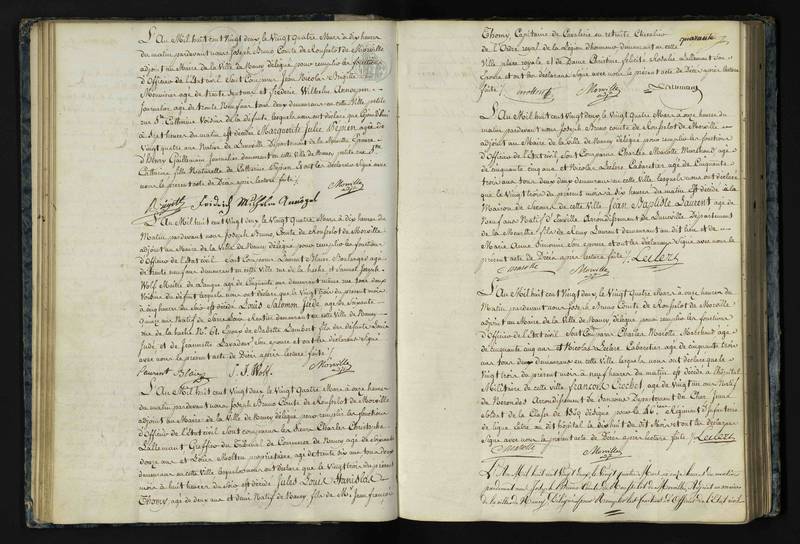 L'An Mil huit cent Vingt deux, le Vingt Quatre Mars à dix heures
du matin pardevant nous Joseph Bruno Comte de Ranfelot de Morville
adjoint au Maire de la Ville de Nancy délégué pour remplir les fonctions
d'Officier de l'Etat civil Sont Comparus Jean Nicolas
Menuisier agé de trente
agé de trente Neuf ans tous deux demeurans en cette Ville petite
rue Ste Catherine Voisins de la défunte lesquels nous ont déclaré que
à Sept heures du matin est décédée Marguerite Julie Bepien agée de
Vingt quatre ans Native de Lunéville Département de la Meurthe
d'Henry Guillemin journalier demeurant en cette Ville de Nancy, petite rue Ste
Catherine fille Naturelle de Catherine Bepien Et ont les déclarans Signé avec
nous le présent acte de Décès après lecture faite /.
Friedrich Wilhelm
Morville
L'An Mil huit cent Vingt deux, le Vingt Quatre Mars à dix heures du
Matin, pardevant nous Joseph Bruno, Comte de Ranfelot de Morville
adjoint au Maire de la Ville de Nancy délégué pour remplir les fonctions
d'Officier de l'Etat civil Sont Comparus Laurent Blaise Boulanger agé
de trente neuf ans demeurant en cette Ville rue de la hache et Samuel Joseph
Wolf Maître de Langue agé de Cinquante ans demeurant même rue tous deux
Voisins du défunt lesquels nous ont déclaré que le Vingt trois du présent mois
à cinq heures du Soir est décédé Louis Salomon Jude agé de Soixante
quinze ans Natif de Sarre Louis Rentier demeurant en cette Ville de Nancy
rue de la hache No. 61 Epoux de Babette Lambert fils des défunts Louis
Jude et de Jeannette Lavadier Son épouse et ont les déclarans Signé
avec nous le présent acte de Décès après lecture faite /.
Laurent Blaise S. J. Wolf. Morville
L'An Mil huit cent Vingt deux le Vingt Quatre Mars à onze heures
du matin pardevant nous Joseph Bruno Comte de Ranfelot de Morville
adjoint au Maire de la Ville de Nancy délégué pour remplir les fonctions
d'Officier de l'état civil Sont comparus les Sieurs Charles Christophe
Lallemant Greffier du Tribunal de Commerce de Nancy agé de Soixante
douze ans et Louis Molten propriétaire agé de trente six ans tous deux
demeurans en cette Ville lesquels nous ont déclaré que le Vingt trois du présent
mois à huit heures du Soir est décédé Jules Louis Stanislas
Thomy, agé de deux ans et demi Natif de Nancy, fils de Mr. Jean françois
quarante
Thomy, Capitaine de Cavalerie en retraite Chevalier
de l'Ordre royal de la Légion d'honneur demeurant en cette
Ville place royale et de Dame Christine félicité Natalie Lallemant Son
Epouse et ont les déclarans Signé avec nous le présent acte de Décès après lecture
faite /. Morville Lallemant
L'An Mil huit cent Vingt deux le Vingt Quatre Mars à onze heures du
matin pardevant nous Joseph Bruno comte de Ranfelot de Morville
adjoint au Maire de la Ville de Nancy délégué pour remplir les fonctions
d'Officier de l'état civil Sont Comparus Charles Marotte Marchand agé
de cinquante cinq ans et Nicolas Leclerc Cabaretier agé de Cinquante
trois ans tous deux demeurans en cette Ville, lesquels nous ont déclaré
que le Vingt trois du présent mois à dix heures du matin est décédé à la
Maison de Secours de cette Ville Jean Baptiste Laurent agé de
Neuf ans Natif d'Einville Arrondissement de Lunéville Département
de la Meurthe fils de Remy Laurent demeurant au dit lieu et de
Marie Anne Simonin Son épouse et ont les déclarans Signé avec nous le
présent acte de Décès après lecture faite /. Leclerc
Marotte Morville
L'An Mil huit cent Vingt deux, le Vingt Quatre Mars à onze heures du
Matin, pardevant nous Joseph Bruno Comte de Ranfelot de Morville
adjoint au Maire de la Ville de Nancy délégué pour remplir les fonctions
d'Officier de l'Etat civil Sont Comparus Charles Marotte Marchand agé
de cinquante cinq ans et Nicolas Leclerc Cabaretier agé de cinquante trois
ans tous deux demeurans en cette Ville, lesquels nous ont déclaré que le
Vingt trois du présent mois à neuf heures du matin est décédé à l'hôpital
Militaire de cette Ville françois Crochet agé de Vingt un ans Natif
de Nerondes Arrondissement de Sancerre Département du Cher Jeune
Soldat de la Classe de dirigé pour le 46e Régiment d'infanterie
de ligne entré au dit hôpital le dix huit du dit Mois et ont les déclarans
Signé avec nous le présent acte de Décès après lecture faite /. Leclerc
Marotte Morville
L'An Mil huit cent Vingt deux, le Vingt quatre Mars à onze heures du matin
pardevant nous Joseph Bruno Comte de Ranfelot de Morville, Adjoint au maire
de la Ville de Nancy Délégué pour Remplir les fonctions d'Officier de l'Etat civil